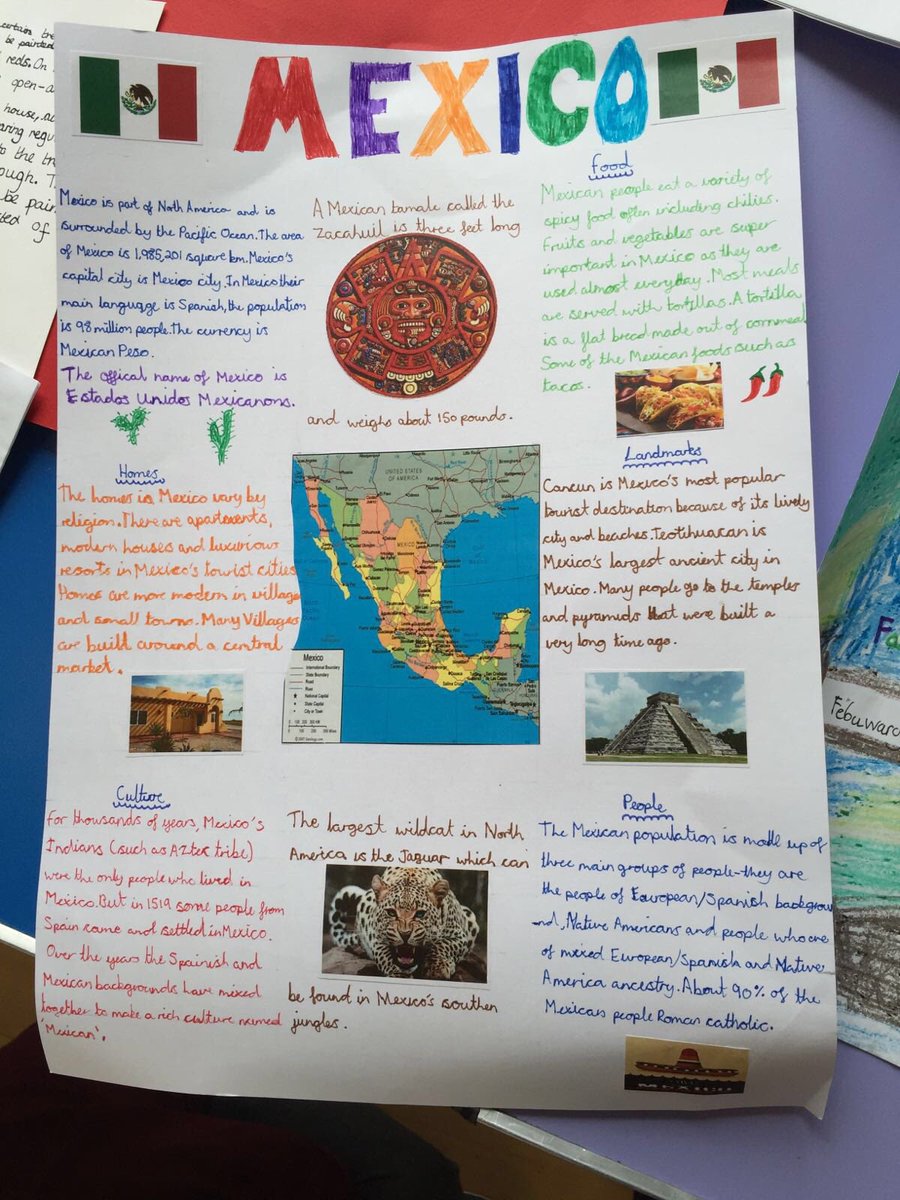 MEXICO
Mexico is part of North America and is
surrounded by the Pacific Ocean. The area
of Mexico is 1,985,201 square km. Mexico's
capital city is Mexico city. In Mexico their
main language is Spanish, the population
is 98 million people. The currency is
Mexican Peso.
The offical name of Mexico is
Estados Unidos Mexicanons.
A Mexican tamale called the
Zacahuil is three feet long
and weighs about 150 pounds.
Food
Mexican people eat a variety of
spicy food often including chilies.
Fruits and vegetables are super
important in Mexico as they are
used almost everyday. Most meals
are served with tortillas. A tortilla
is a flat bread made out of cornmeal
Some of the Mexican foods such as
tacos.
Homes
The homes in Mexico vary by
religion. There are apartments,
modern houses and luxurious
resorts in Mexico's tourist cities
Homes are more modern in village
and small towns. Many Villages
are built around a central
market.
UNITED STATES
OF AMERICA
MEXICO
Mexico
International Boundary
State Boundary
Road
River
National Capital
State Capital
City or Town
Landmarks
Cancun is Mexico's most popular
tourist destination because of its lively
city and beaches. Teotihuacan is
Mexico's largest ancient city in
Mexico. Many people go to the temples
and pyramids that were built a
very long time ago.
Culture
For thousands of years, Mexico's
Indians (such as Aztek tribe)
were the only people who lived in
Mexico. But in 1519 some people from
Spain came and settled in Mexico.
Over the years the Spainish and
Mexican backgrounds have mixed
together to make a rich culture named
'Mexican'.
The largest wildcat in North
America is the Jaguar which can
be found in Mexico's southen
jungles.
People
The Mexican population is made up of
three main groups of people-they are
the people of European/Spanish backgrou
nd, Native Americans and people who are
of mixed European/Spanish and Native
America ancestry. About 90% of the
Mexican people Roman catholic.
certain
be painted
reds. On
open-a
house,
to the
ough. T
be pain
of
Fa
Febuwar